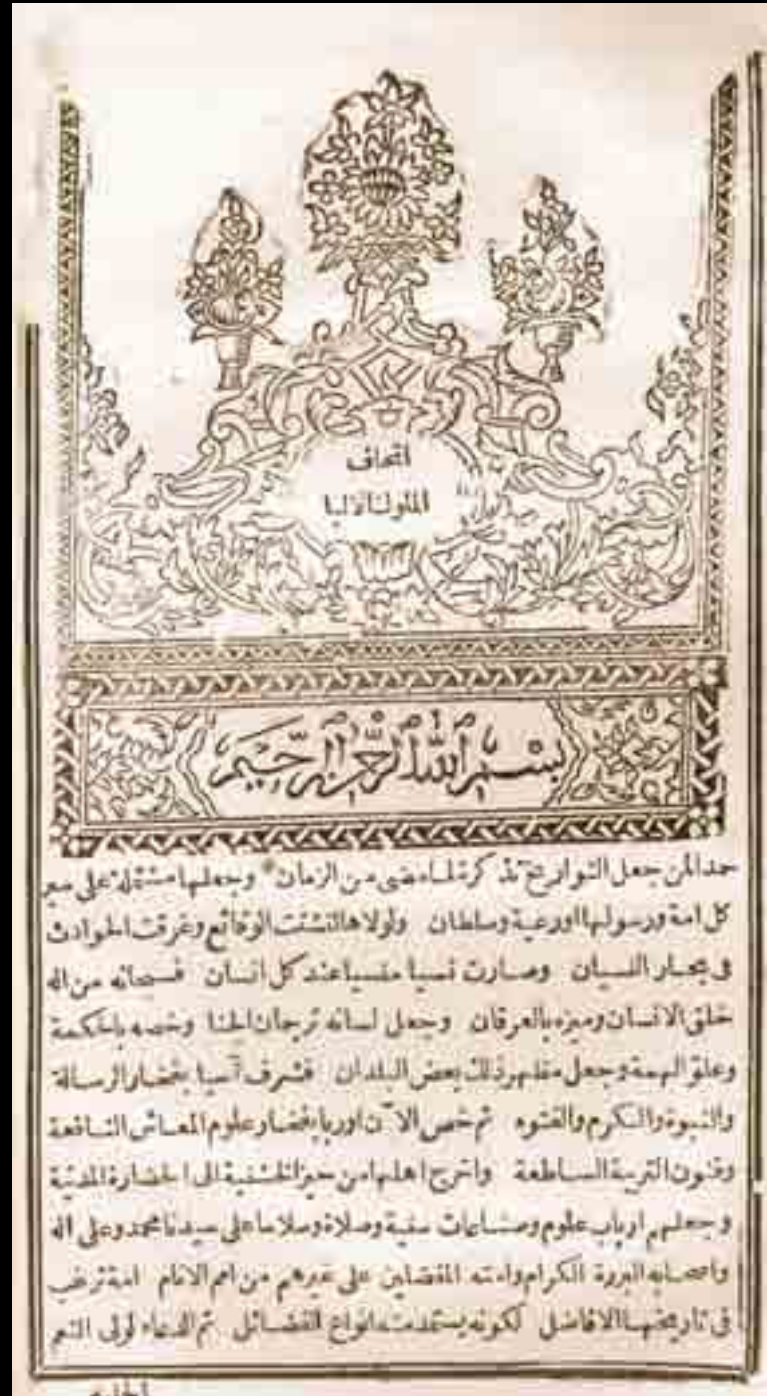 اتحاف
الملوك الالبا
بسم الله الرحمن الرحيم
حمدا لمن جعل التواريخ تذكرة لما مضى من الزمان * وجعلها مشتملة على
كل امة ورسولها او رعية وسلطان ولولاها لتشتت الوقائع وغرقت الحوادث
فى بحار النسيان وصارت نسيا منسيا عند كل انسان فسبحانه من اله
خلق الانسان وميزه بالعرفان وجعل لسانه ترجمان الجنا وخصه بالحكمة
وعلو الهمة وجعل مظهر ذلك بعض البلدان فشرف آسيا بفخار الرسالة
والنبوة والكرم والفتوه ثم خص الآن اوربا بفخار علوم المعاش النافعة
وفنون التربية الساطعة واخرج اهلها من حيز الخشنية الى الحضارة المدنية
وجعلهم ارباب علوم وصناعات سنية وصلاة وسلاما على سيدنا محمد وعلى اله
واصحابه البررة الكرام وامته المفضلين على غيرهم من امم الانام امة ترغب
فى تاريخها الافاضل لكونه يستمد منه انواع الفضائل ثم الدعاء لولى النعم